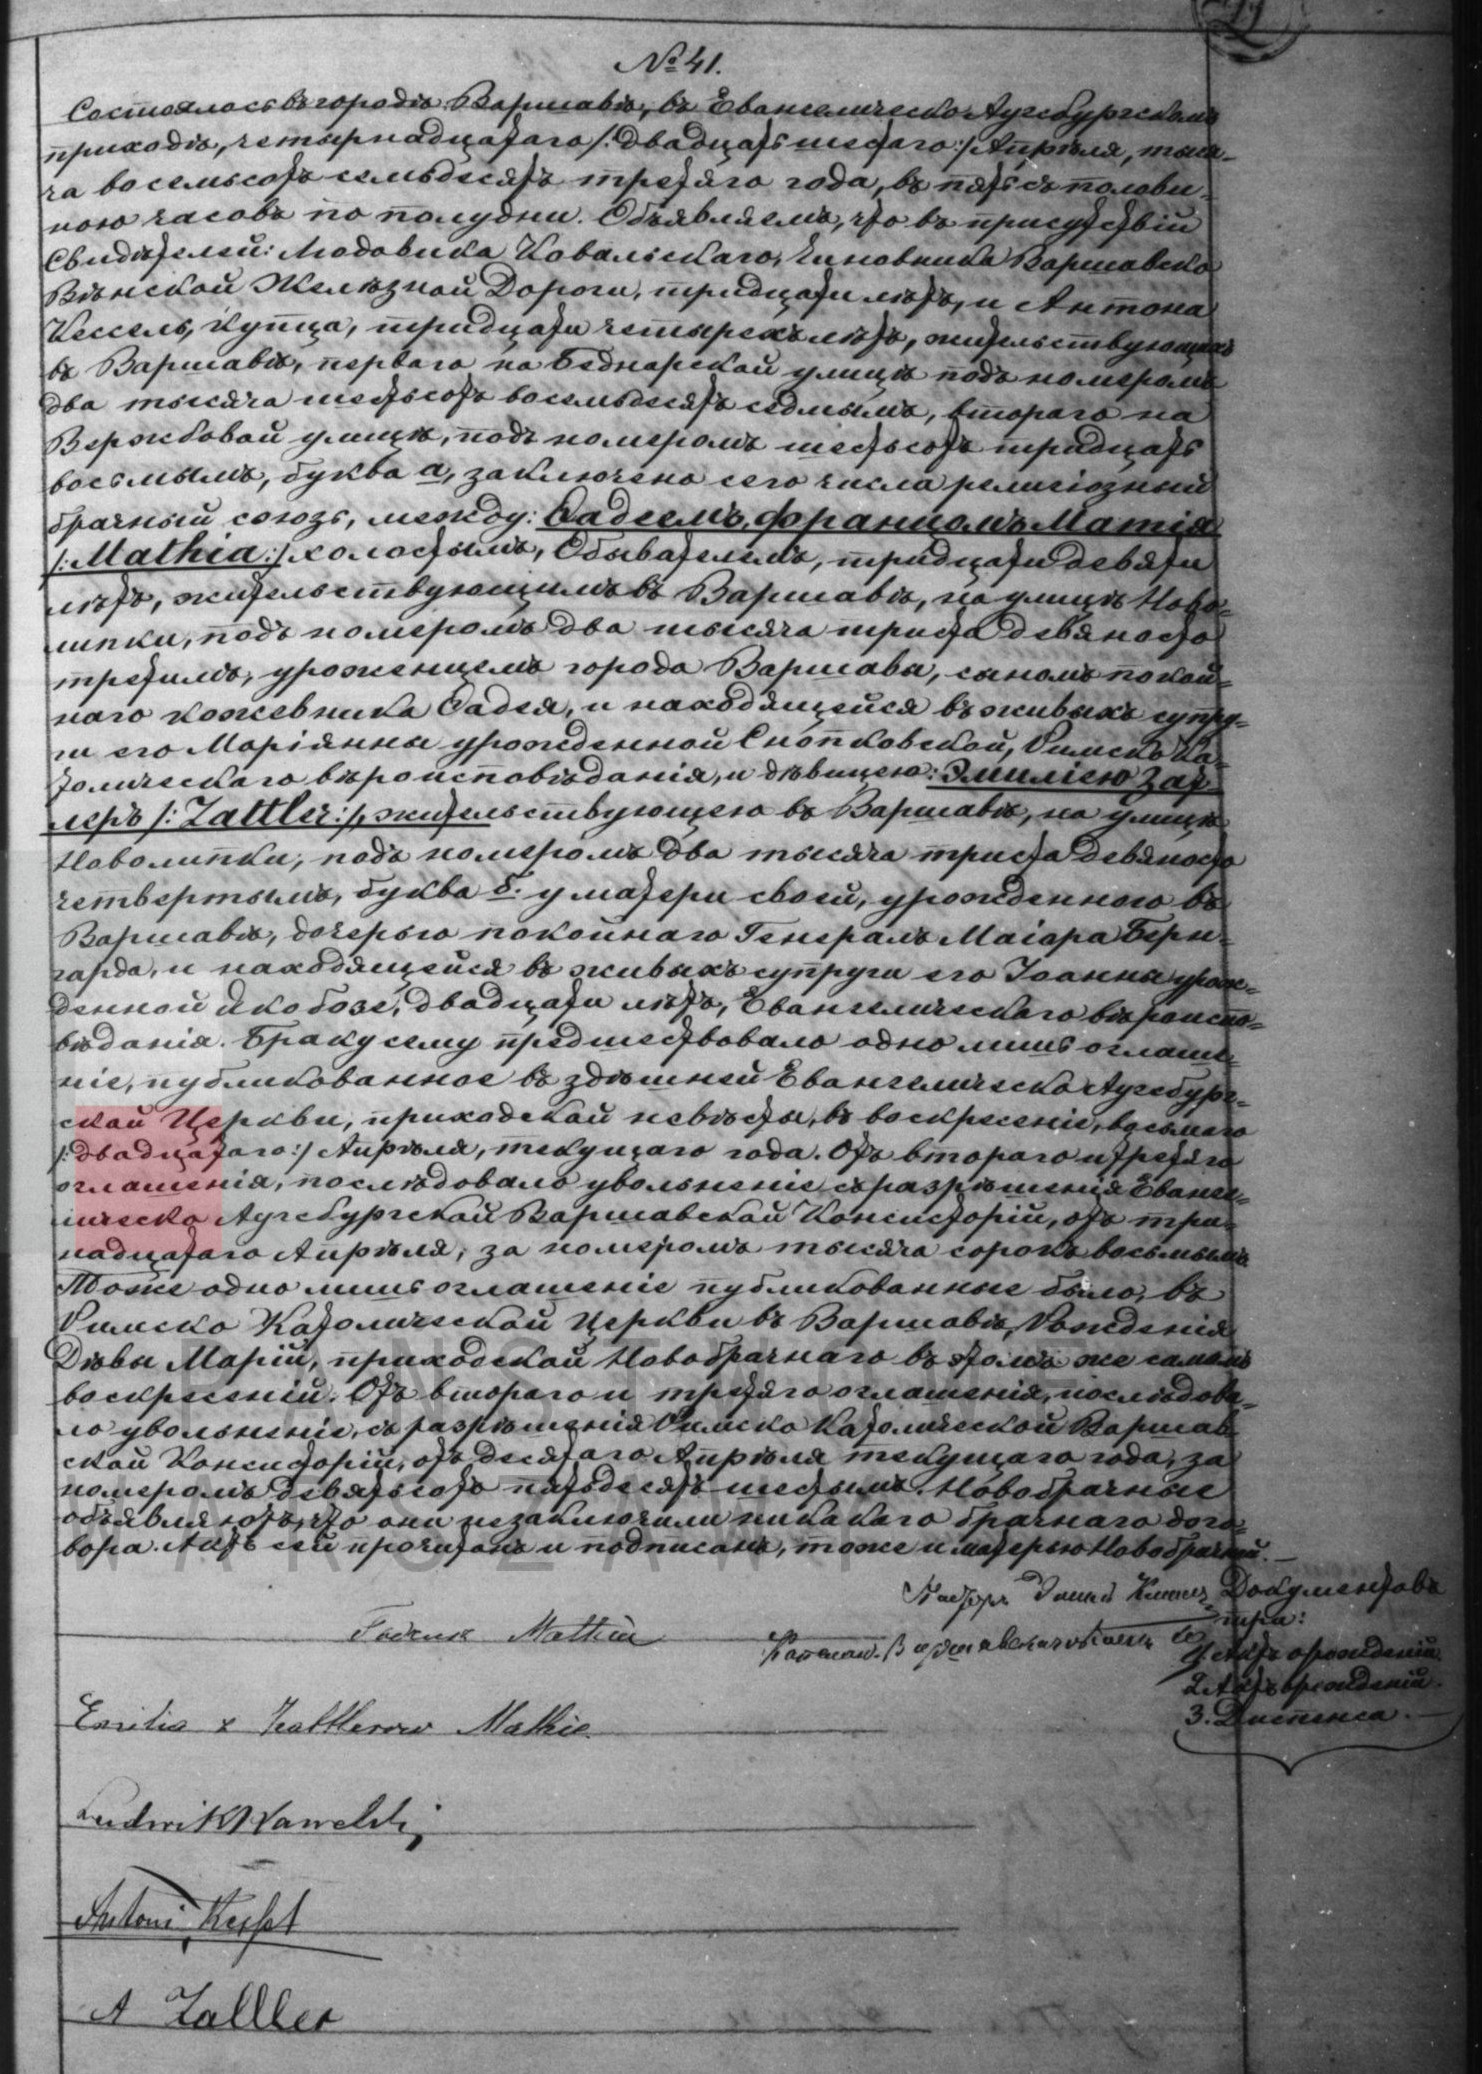 № 41.
Состоялось въ городѣ Варшавѣ, въ Евангелическо Аугсбургскомъ
приходѣ, четырнадцатаго /:двадцать шестаго:/ Апрѣля, тыся-
ча восемьсотъ семьдесятъ третяго года, въ пять съ полови-
ною часовъ по полудни. Объявляемъ, что въ присутствіи
Свидѣтелей: Людовика Ковальскаго, Чиновника Варшавско
Вѣнской Желѣзной Дороги, тридцати лѣтъ, и Антона
Кессель, Купца, тридцати четырехъ лѣтъ, жительствующихъ
въ Варшавѣ, перваго на Беднарской улицѣ подъ номеромъ
два тысяча шестьсотъ восемьдесятъ седмымъ, втораго на
Вержбовой улицѣ, подъ номеромъ шестьсотъ тридцать
восьмымъ, буква а, заключено сего числа религіозный
брачный союзъ, между: Фадеемъ, Францомъ Матія
/:Mathia:/ холостымъ, Обывателемъ, тридцати девяти
лѣтъ, жительствующимъ въ Варшавѣ, на улицѣ Ново-
липки, подъ номеромъ два тысяча триста девяносто
третимъ, уроженцемъ города Варшавы, сыномъ покой-
наго кожевника Фадея, и находящейся въ живыхъ супру-
ги его Маріянны урожденной Снопковской, Римско Ка-
толическаго вѣроисповѣданія, и дѣвицею: Эмиліею Зат-
леръ /:Zattler:/, жительствующею въ Варшавѣ, на улицѣ
Новолипки, подъ номеромъ два тысяча триста девяносто
четвертымъ, буква б. у матери своей, урожденною въ
Варшавѣ, дочерью покойнаго Генералъ Маіора Берн-
гарда, и находящейся въ живыхъ супруги его Іоанны урож-
денной Якобозе, двадцати лѣтъ, Евангелическаго вѣроиспо-
вѣданія. Браку сему предшествовало одно лишь оглаше-
ніе, публикованное въ здѣшней Евангелическо Аугсбург-
ской Церкви, приходской невѣсты, въ воскресеніе, восьмаго
/:двадцатаго:/ Апрѣля, текущаго года. Отъ втораго и третяго
оглашенія, послѣдовало увольненіе съ разрѣшенія Еванге-
лическо Аугсбургской Варшавской Консисторіи, отъ три-
надцатаго Апрѣля, за номеромъ тысяча сорокъ восьмымъ
Тоже одно лишь оглашеніе публикованные было, въ
Римско Католической Церкви въ Варшавѣ, Рожденія
Дѣвы Маріи, приходской Новобрачнаго въ томъ же самомъ
воскресеніи. Отъ втораго и третяго оглашенія, послѣдова-
ло увольненіе, съ разрѣшенія Римско Католической Варшав
ской Консисторіи, отъ десятаго Апрѣля текущаго года, за
номеромъ девятьсотъ пятьдесятъ шестымъ. Новобрачные
объявляютъ, что они незаключили никакаго брачнаго дого-
вора. Актъ сей прочитанъ и подписанъ, тоже и матерью Новобрачной.
Документовъ
три:
1. Актъ о рожденіи.
2. Актъ о рожденіи.
3. Диспенса.
Mathia
Emilia z Zattlerów Mathia
Ludwik Kowalski
Antoni Kessel
A Zattler